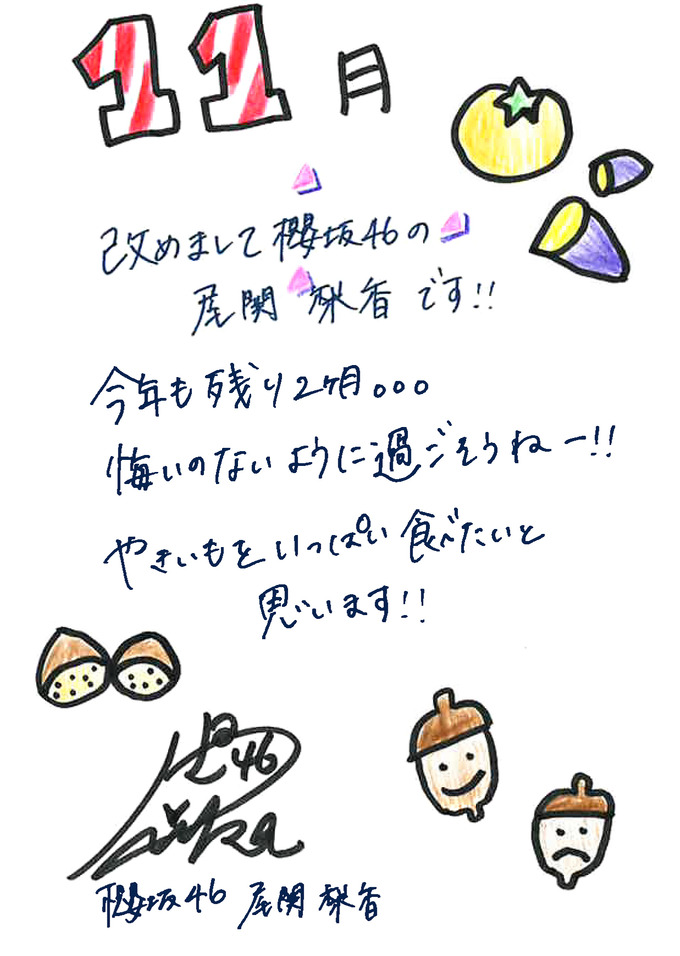 11月
改めまして櫻坂46の
尾関 梨香 です!!
今年も残り2ヶ月。。。
悔いのないように過ごそうねー!!
やきいもをいっぱい食べたいと
思います!!
46
櫻坂46 尾関 梨香